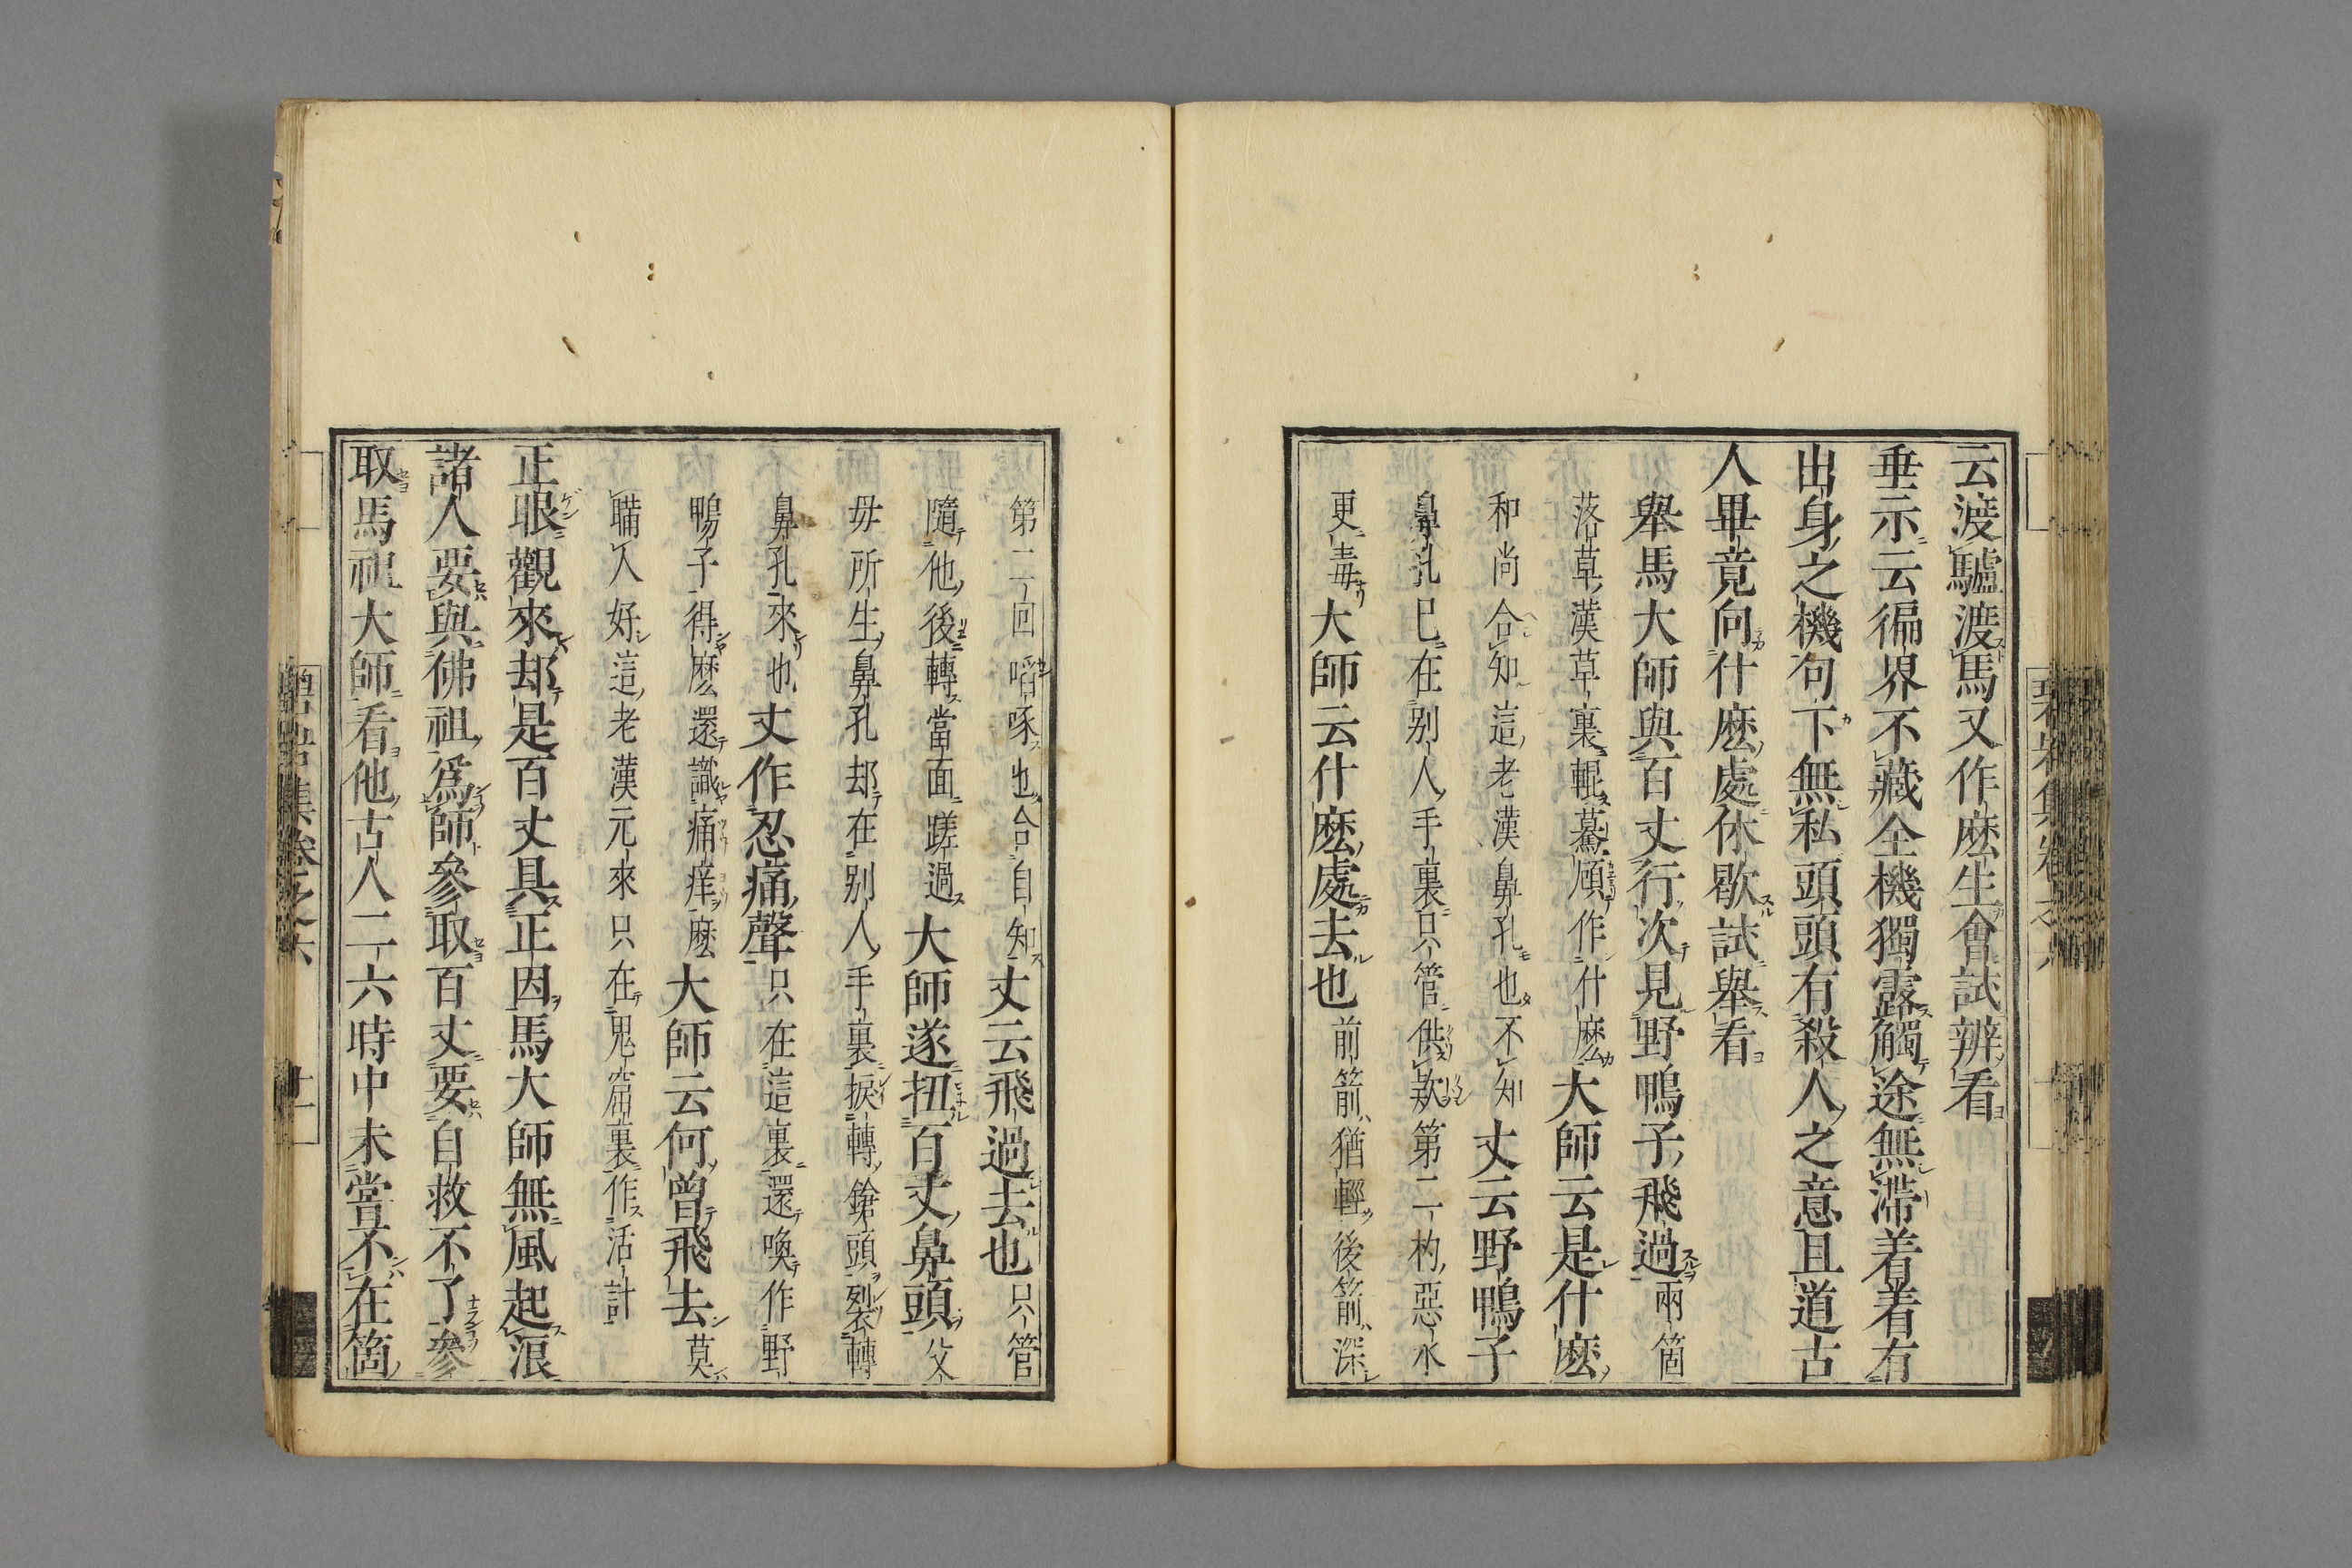 云渡驢渡馬又作麽生會試辨看
垂示云徧界不藏全機獨露觸途無滯着着有
出身之機句下無私頭頭有殺人之意且道古
人畢竟向什麽處休歇試舉看
舉馬大師與百丈行次見野鴨子飛過兩箇
落草漢草裏輥驀顧作什麽大師云是什麽
和尚合知這老漢鼻孔也不知丈云野鴨子
鼻孔已在别人手裏只管供欵第二杓惡水
更毒大師云什麽處去也前箭猶輕後箭深
第二回啗啄也合自知丈云飛過去也只管
隨他後轉當面蹉過大師遂扭百丈鼻頭父
母所生鼻孔却在别人手裏捩轉鎗頭裂轉
鼻孔來也丈作忍痛聲只在這裏還喚作野
鴨子得麽還識痛痒麽大師云何曾飛去莫
瞞人好這老漢元來只在鬼窟裏作活計
正眼觀來却是百丈具正因馬大師無風起浪
諸人要與佛祖爲師參取百丈要自救不了參
取馬祖大師看他古人二六時中未嘗不在箇
碧岩集卷之六
十一